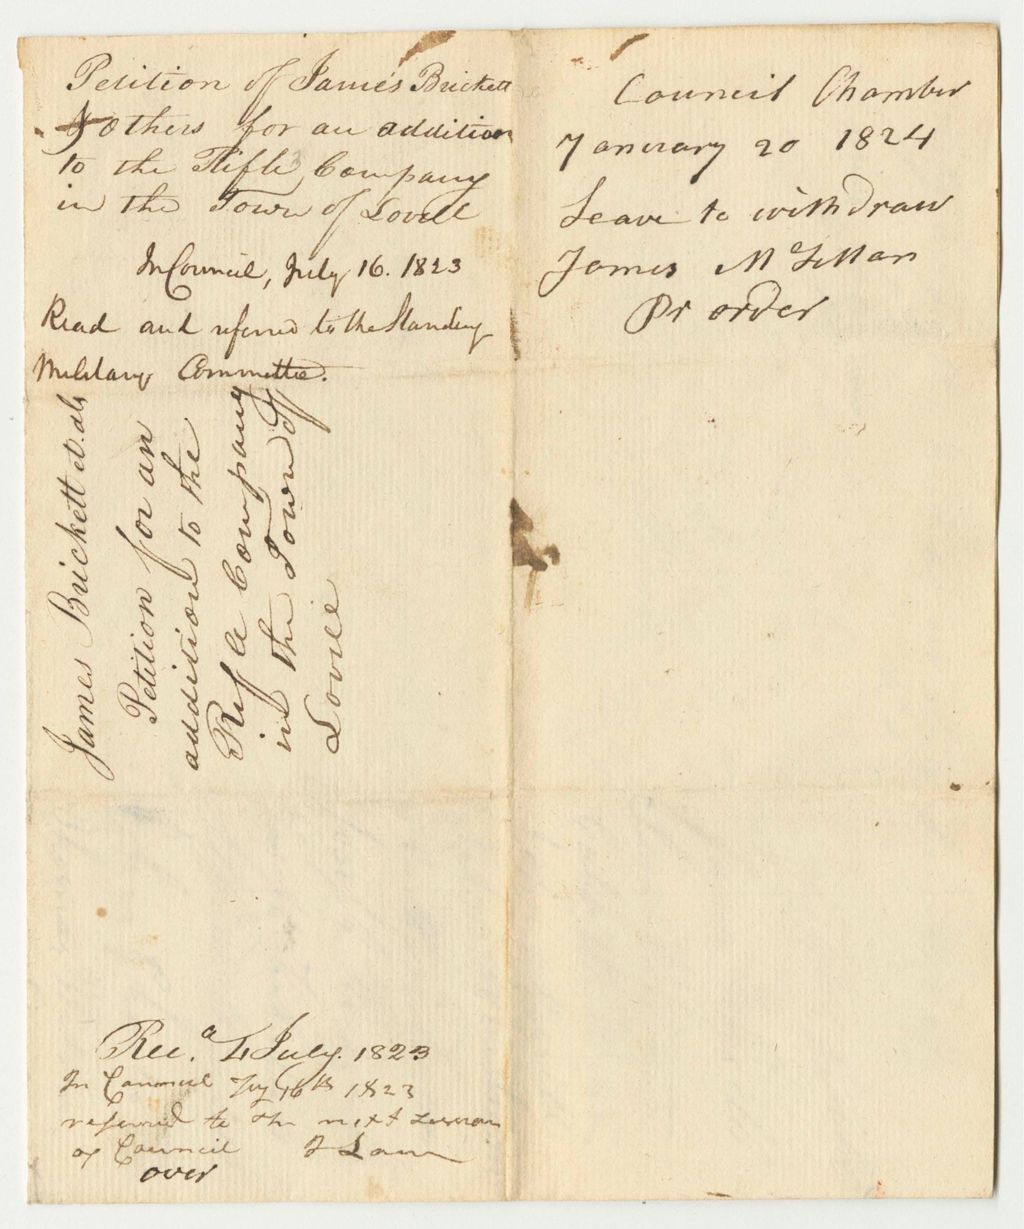 Petition of James Brickett
& others for an addition
to the Rifle Company
in the Town of Lovell
In Council, July 16. 1823
Read and referred to the Standing
Military Committee.
James Brickett et. als
Petition for an
addition to the
Rifle Company
in the Town of
Lovell
Recd. 4 July. 1823
In Council July 16th 1823
referred to the next session
of Council
over
Council Chamber
January 20 1824
Leave to withdraw
James McLellan
Pr order